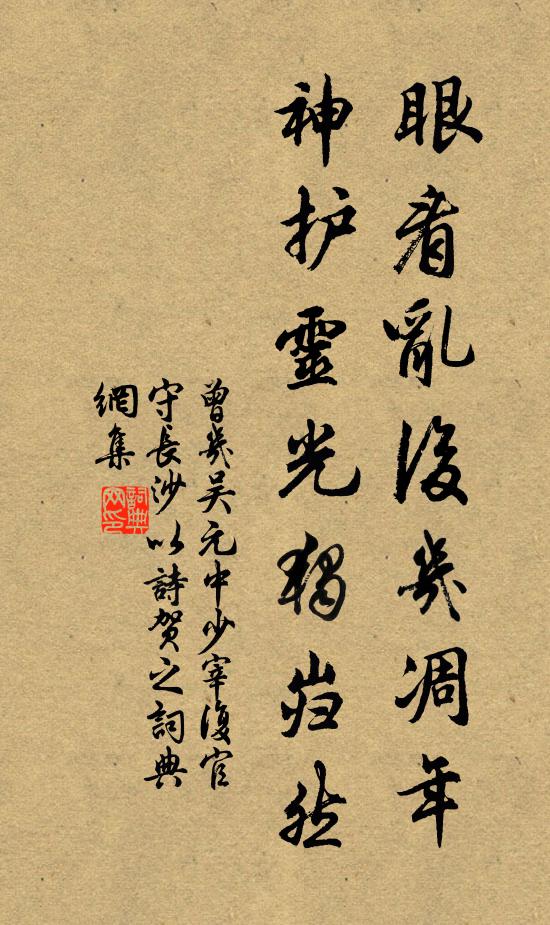 眼看亂後幾凋年
神护靈光獨岿然
曾幾吴元中少宰復官
守長沙以詩贺之詞典
網集
詞典
网印